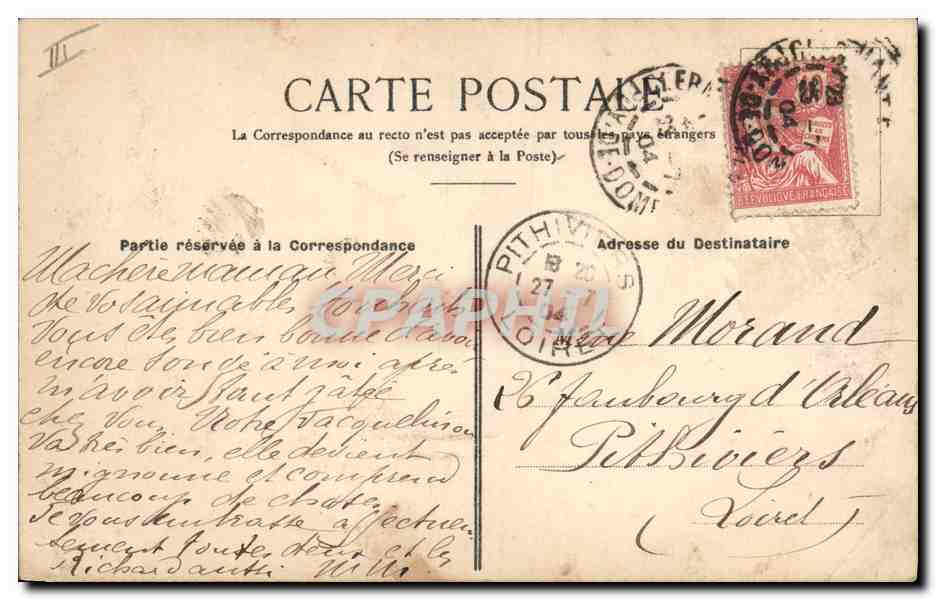 III
CARTE POSTALE
La Correspondance au recto n'est pas acceptée par tous les pays étrangers
(Se renseigner à la Poste)
RÉPUBLIQUE FRANÇAISE
10
PITHIVIERS
18 20
27
04
LOIRET
DOME
04
Partie réservée à la Correspondance
Ma chère maman Merci
de vos aimables
Vous êtes bien bonne d'avoir
encore songé à moi après
m'avoir tant gâtée
chez vous. Votre Jacqueline
va très bien, elle devient
mignonne et comprend
beaucoup de choses
Je vous embrasse affectueu
sement toutes deux et le
Richard aussi
Adresse du Destinataire
Morand
26 faubourg d'Orléans
Pithiviers
(Loiret)
CPAPHIL